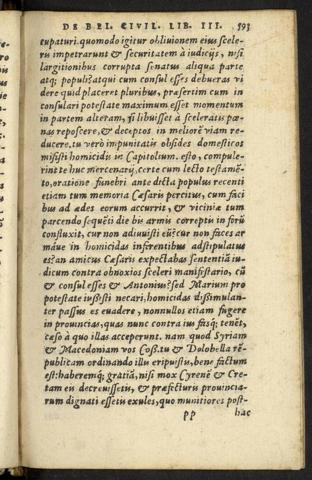 DE BEL. CIVIL. LIB. III. 593
cupaturi. quomodo igitur obliuionem eius scele-
ris impetrarunt & securitatem à iudicijs, nisi
largitionibus corrupta senatus aliqua parte
atq; populi? atqui cum consul esses debueras vi
dere quid placeret pluribus, præsertim cum in
consulari potestate maximum esset momentum
in partem alteram, si libuisset à sceleratis pœ-
nas reposcere, & deceptos in meliorē viam re-
ducere. tu verò impunitatis obsides domesticos
misisti homicidis in Capitolium. esto, compule-
rint te huc mercenarij, certe cum lecto testamē-
to, oratione funebri ante dicta populus recenti
etiam tum memoria Cæsaris percitus, cum faci
bus ad ædes eorum accurrit, & viciniæ tum
parcendo sequēti die bis armis correptis in forū
confluxit, cur non adiuuisti eū? cur non faces ar
máue in homicidas inferentibus adstipulatus
es? an amicus Cæsaris expectabas sententiā iu-
dicum contra obnoxios sceleri manifestario, cū
& consul esses & Antonius? sed Marium pro
potestate iussisti necari, homicidas dissimulan-
ter passus es euadere, nonnullos etiam fugere
in prouincias, quas nunc contra ius fasq; tenēt,
cæso à quo illas acceperunt. nam quod Syriam
& Macedoniam vos Coss. tu & Dolobella rē-
publicam ordinando illu eripuistis, bene factum
est: haberemq; gratiā, nisi mox Cyrenē & Cre-
tam eis decreuissetis, & præfecturis prouincia-
rum dignati essetis exules, quo munitiores post-
PP hac